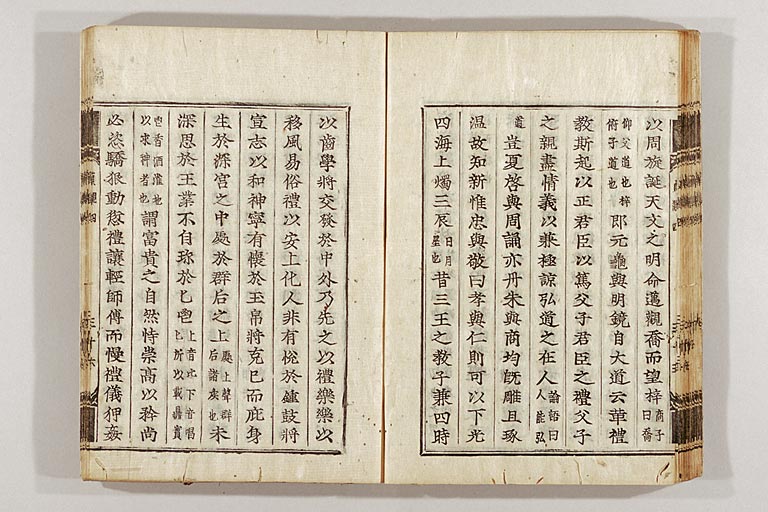 以周旋誕天文之明命邁觀喬而望梓 商子曰喬
仰父道也梓俯子道也 即元龜與明鏡自大道云革禮
敎斯起以正君臣以篤父子君臣之禮父子
之親盡情義以兼極諒弘道之在人 論語曰人能弘
道 豈夏啓與周誦亦丹朱與商均旣雕且琢
溫故知新惟忠與敬曰孝與仁則可以下光
四海上燭三辰 日月星也 昔三王之敎子兼四時
以齒學將交發於中外乃先之以禮樂樂以
移風易俗禮以安上化人非有悅於鍾鼓將
宣志以和神寧有懷於玉帛將克己而庇身
生於深宮之中處於群后之上 處上聲群后諸侯也 未
深思於王業不自珍於匕鬯 上音比下音唱匕所以載鼎實
也鬯香酒灌地以求神者也 謂富貴之自然恃崇高以矜尚
必恣驕狠動愆禮讓輕師傅而慢禮儀狎姦